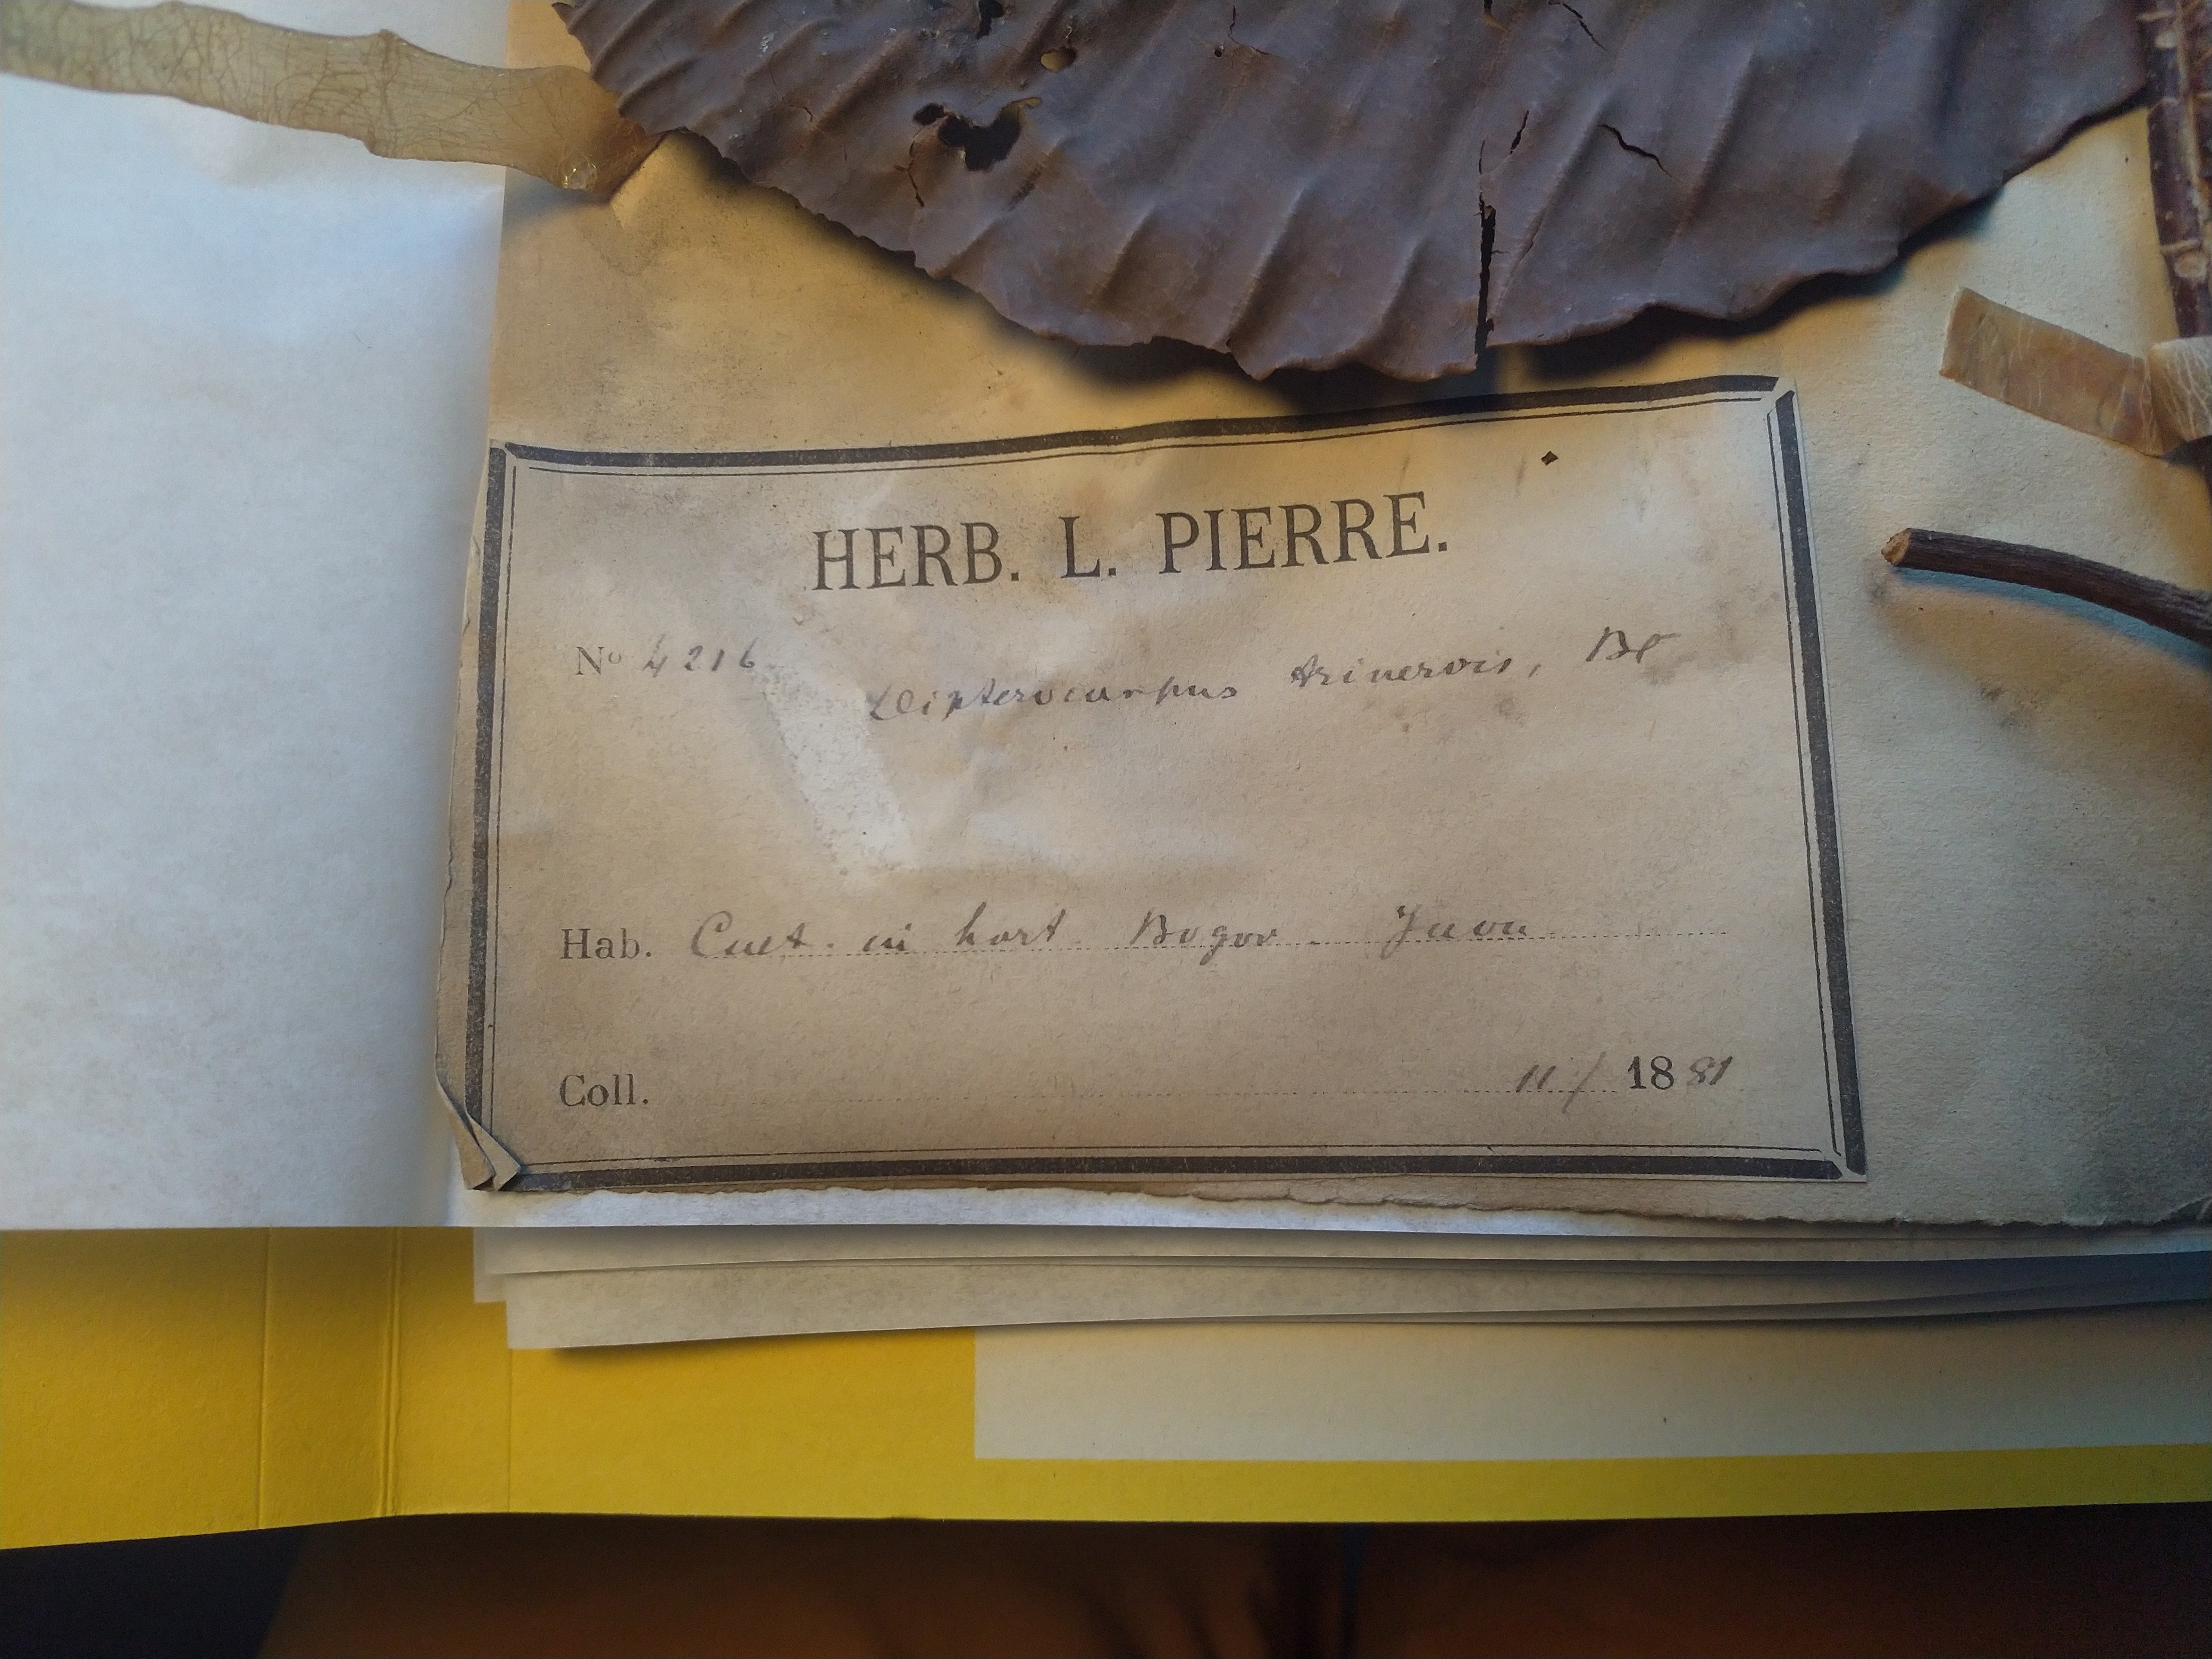 HERB. L. PIERRE.
Nº 4216
Dipterocarpus trinervis, Bl
Hab. Cult. in hort. Bogor. Java
Coll. 11/ 1881